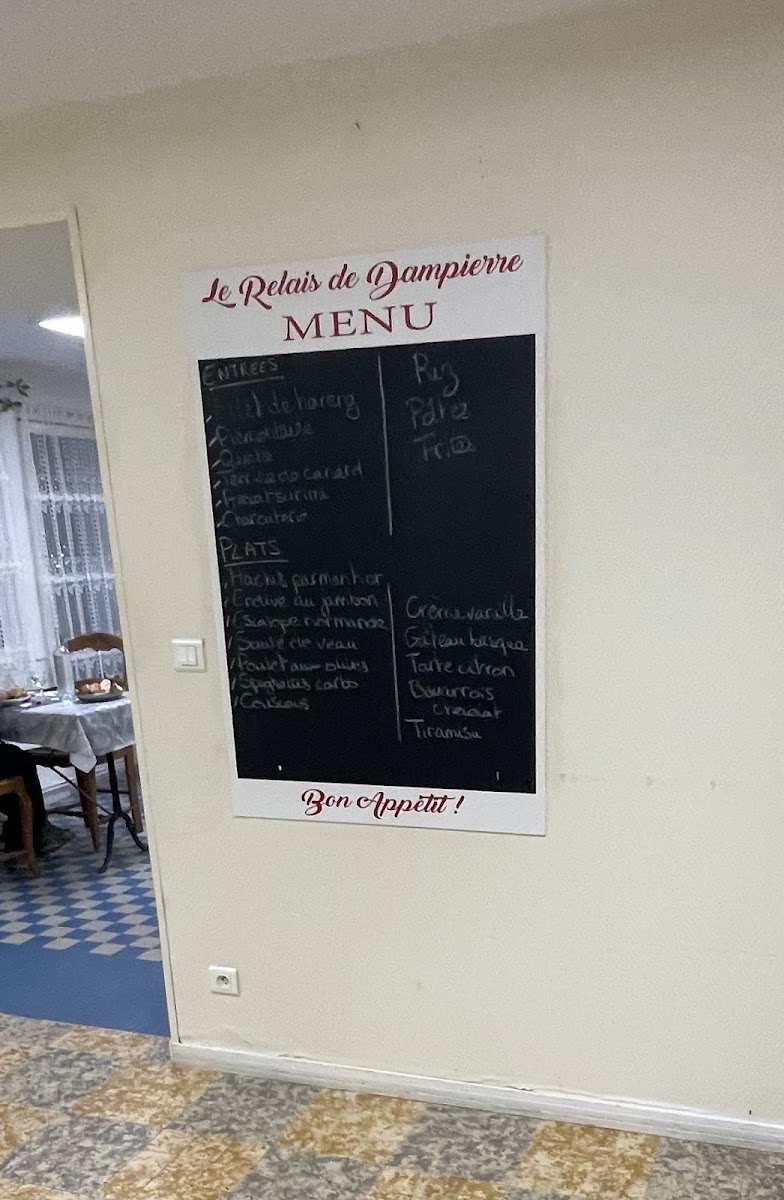 Le Relais de Dampierre
MENU
ENTREES
de hareng
Piemontaise
Quiche
Terrine de canard
surimi
Charcuterie
Riz
Pates
PLATS
Hachis parmentier
Endive au jambon
Escalope normande
Sauté de veau
Poulet aux olives
Spaghettis carbo
Couscous
Crème vanille
Gâteau basque
Tarte citron
Tiramisu
Bon Appétit !